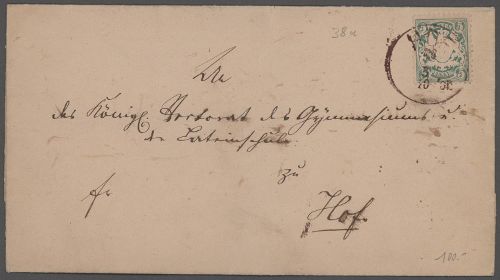 38a
An
das Königl. Rektorat des Gymnasiums u.
der Lateinschule
zu
fr
Hof.
100.-